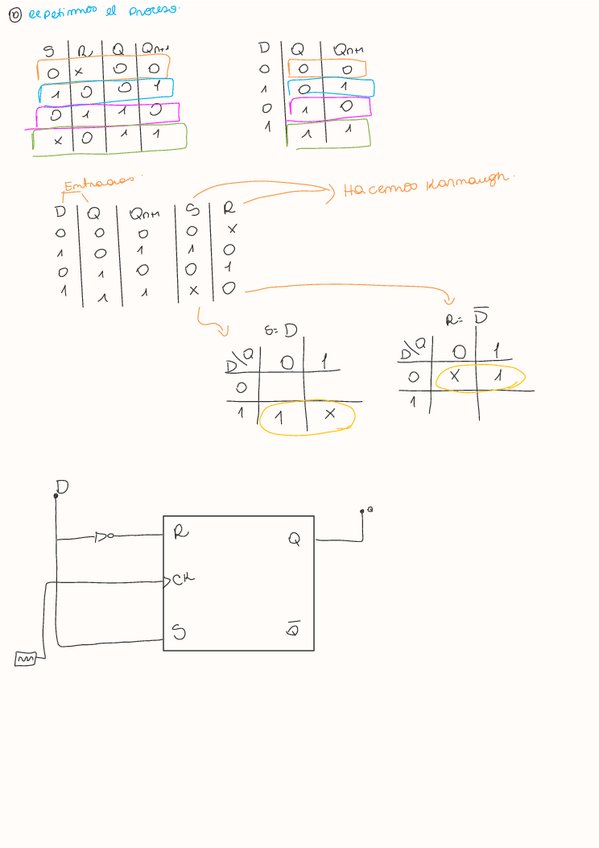 10 repetimos el proceso.
S R Q Qn+1
0 x 0 0
1 0 0 1
0 1 1 0
x 0 1 1
D Q Qn+1
0 0 0
1 0 1
0 1 0
1 1 1
Entradas.
Hacemos Karnaugh.
D Q Qn+1 S R
0 0 0 0 x
1 0 1 1 0
0 1 0 0 1
1 1 1 x 0
S= D
D\Q 0 1
0
1 1 x
R= D̅
D\Q 0 1
0 x 1
1
D
R Q
CK
S Q̅
Q